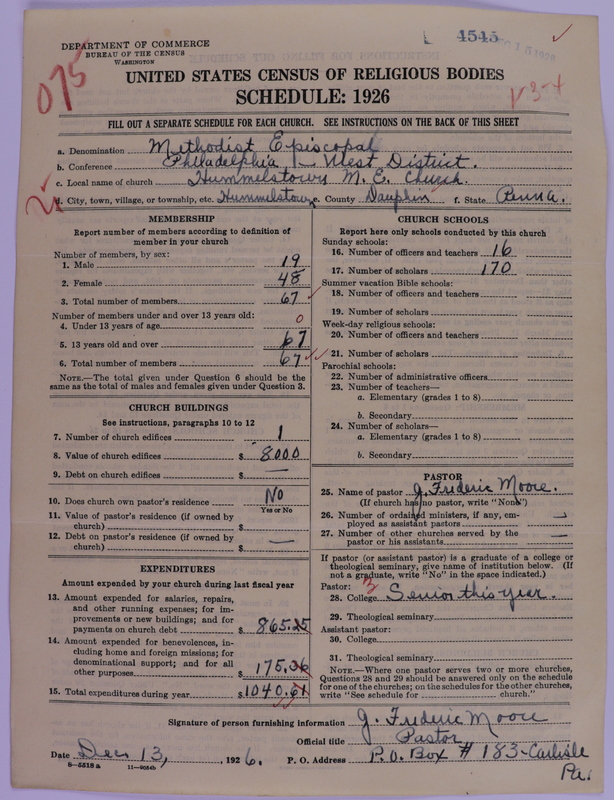 DEPARTMENT OF COMMERCE
BUREAU OF THE CENSUS
WASHINGTON
4545
075
UNITED STATES CENSUS OF RELIGIOUS BODIES
SCHEDULE: 1926
FILL OUT A SEPARATE SCHEDULE FOR EACH CHURCH. SEE INSTRUCTIONS ON THE BACK OF THIS SHEET
a. Denomination Methodist Episcopal
b. Conference Philadelphia - West District.
c. Local name of church Hummelstown M. E. Church.
d. City, town, village, or township, etc. Hummelstown e. County Dauphin f. State Penna.
MEMBERSHIP
Report number of members according to definition of
member in your church
Number of members, by sex:
1. Male 19
2. Female 48
3. Total number of members 67
Number of members under and over 13 years old:
4. Under 13 years of age 0
5. 13 years old and over 67
6. Total number of members 67
NOTE.—The total given under Question 6 should be
same as the total of males and females given under Question 3.
CHURCH BUILDINGS
See instructions, paragraphs 10 to 12
7. Number of church edifices 1
8. Value of church edifices $ 8000
9. Debt on church edifices $ —
10. Does church own pastor's residence No
Yes or No
11. Value of pastor's residence (if owned by
church) $
12. Debt on pastor's residence (if owned by
church) $ —
EXPENDITURES
Amount expended by your church during last fiscal year
13. Amount expended for salaries, repairs,
and other running expenses; for im-
provements or new buildings; and for
payments on church debt $ 865.25
14. Amount expended for benevolences, in-
cluding home and foreign missions; for
denominational support; and for all
other purposes $ 175.36
15. Total expenditures during year $ 1040.61
CHURCH SCHOOLS
Report here only schools conducted by this church
Sunday schools:
16. Number of officers and teachers 16
17. Number of scholars 170
Summer vacation Bible schools:
18. Number of officers and teachers
19. Number of scholars
Week-day religious schools:
20. Number of officers and teachers
21. Number of scholars
Parochial schools:
22. Number of administrative officers
23. Number of teachers—
a. Elementary (grades 1 to 8)
b. Secondary
24. Number of scholars—
a. Elementary (grades 1 to 8)
b. Secondary
PASTOR
25. Name of pastor J. Frederic Moore.
(If church has no pastor, write "None")
26. Number of ordained ministers, if any, em-
ployed as assistant pastors —
27. Number of other churches served by the
pastor or his assistants —
If pastor (or assistant pastor) is a graduate of a college or
theological seminary, give name of institution below. (If
not a graduate, write "No" in the space indicated.)
Pastor: 3
28. College Senior this year.
29. Theological seminary
Assistant pastor:
30. College
31. Theological seminary
NOTE.—Where one pastor serves two or more churches,
Questions 28 and 29 should be answered only on the schedule
for one of the churches; on the schedules for the other churches,
write "See schedule for church."
Signature of person furnishing information J. Frederic Moore
Official title Pastor
Date Dec 13, 1926. P. O. Address P.O. Box # 183 - Carlisle
Pa.
8—5518 a